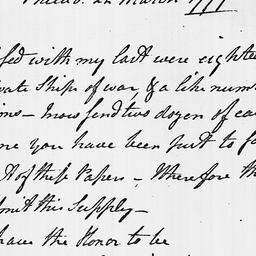 Philad. 22 March 177
sed with my last were eightee
ivate Ships of war, & a like num
ions – I now send two dozen of ea
me you have been put to fo
t of these Papers – Wherefore th
mit this Supply –
have the Honor to be